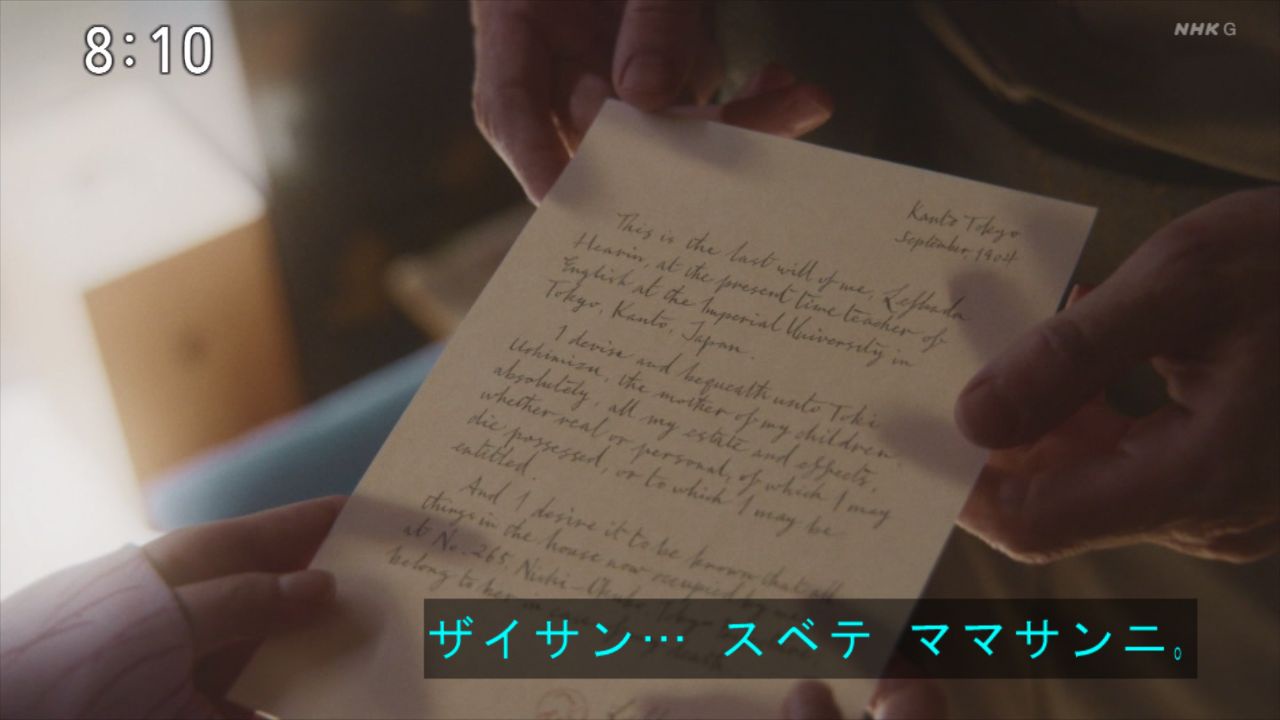 8:10
NHK G
Kanto Tokyo
September, 1904
This is the last will of me, Lefkada
Heavin, at the present time teacher of
English at the Imperial University in
Tokyo, Kanto, Japan.
I devise and bequeath unto Toki
Ushimizu, the mother of my children
absolutely, all my estate and effects,
whether real or personal, of which I may
die possessed, or to which I may be
entitled.
And I desire it to be known that all
things in the house now occupied by me
at No. 265, Nishi-Okubo, Tokyo
belong to her in
ザイサン… スベテ ママサンニ。